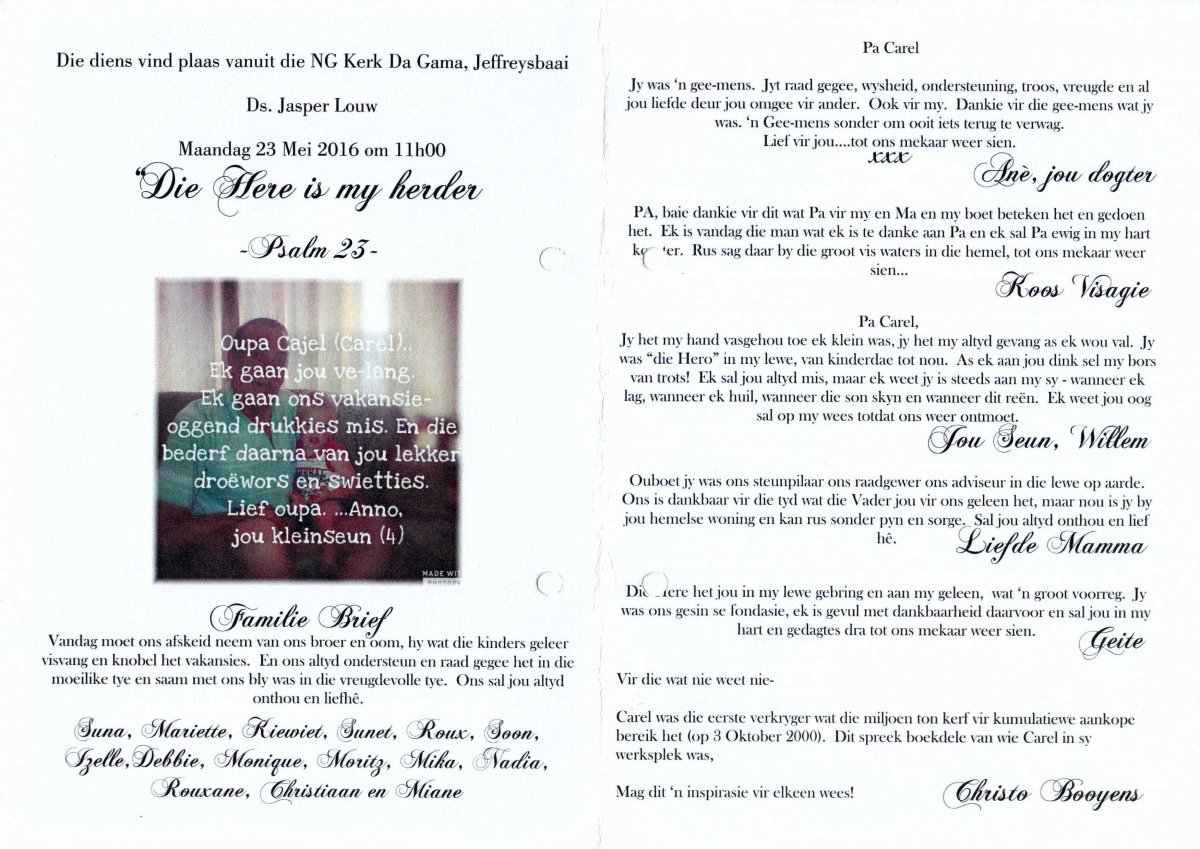 Die diens vind plaas vanuit die NG Kerk Da Gama, Jeffreysbaai
Ds. Jasper Louw
Maandag 23 Mei 2016 om 11h00
“Die Here is my herder
-Psalm 23-
Oupa Cajel (Carel)..
Ek gaan jou ve-lang.
Ek gaan ons vakansie-
oggend drukkies mis. En die
bederf daarna van jou lekker
droëwors en swietties.
Lief oupa. ...Anno,
jou kleinseun (4)
MADE WIT
Familie Brief
Vandag moet ons afskeid neem van ons broer en oom, hy wat die kinders geleer
visvang en knobel het vakansies. En ons altyd ondersteun en raad gegee het in die
moeilike tye en saam met ons bly was in die vreugdevolle tye. Ons sal jou altyd
onthou en liefhê.
Suna, Mariette, Kiewiet, Sunet, Roux, Soon,
Izelle,Debbie, Monique, Moritz, Mika, Nadia,
Rouxane, Christiaan en Miane
Pa Carel
Jy was ‘n gee-mens. Jyt raad gegee, wysheid, ondersteuning, troos, vreugde en al
jou liefde deur jou omgee vir ander. Ook vir my. Dankie vir die gee-mens wat jy
was. ‘n Gee-mens sonder om ooit iets terug te verwag.
Lief vir jou....tot ons mekaar weer sien.
xxx
Anè, jou dogter
PA, baie dankie vir dit wat Pa vir my en Ma en my boet beteken het en gedoen
het. Ek is vandag die man wat ek is te danke aan Pa en ek sal Pa ewig in my hart
Rus sag daar by die groot vis waters in die hemel, tot ons mekaar weer
sien...
Koos Visagie
Pa Carel,
Jy het my hand vasgehou toe ek klein was, jy het my altyd gevang as ek wou val. Jy
was “die Hero” in my lewe, van kinderdae tot nou. As ek aan jou dink sel my bors
van trots! Ek sal jou altyd mis, maar ek weet jy is steeds aan my sy - wanneer ek
lag, wanneer ek huil, wanneer die son skyn en wanneer dit reën. Ek weet jou oog
sal op my wees totdat ons weer ontmoet.
Jou Seun, Willem
Ouboet jy was ons steunpilaar ons raadgewer ons adviseur in die lewe op aarde.
Ons is dankbaar vir die tyd wat die Vader jou vir ons geleen het, maar nou is jy by
jou hemelse woning en kan rus sonder pyn en sorge. Sal jou altyd onthou en lief
hê.
Liefde Mamma
Die Here het jou in my lewe gebring en aan my geleen, wat ‘n groot voorreg. Jy
was ons gesin se fondasie, ek is gevul met dankbaarheid daarvoor en sal jou in my
hart en gedagtes dra tot ons mekaar weer sien.
Geite
Vir die wat nie weet nie-
Carel was die eerste verkryger wat die miljoen ton kerf vir kumulatiewe aankope
bereik het (op 3 Oktober 2000). Dit spreek boekdele van wie Carel in sy
werksplek was,
Mag dit ‘n inspirasie vir elkeen wees!
Christo Booyens